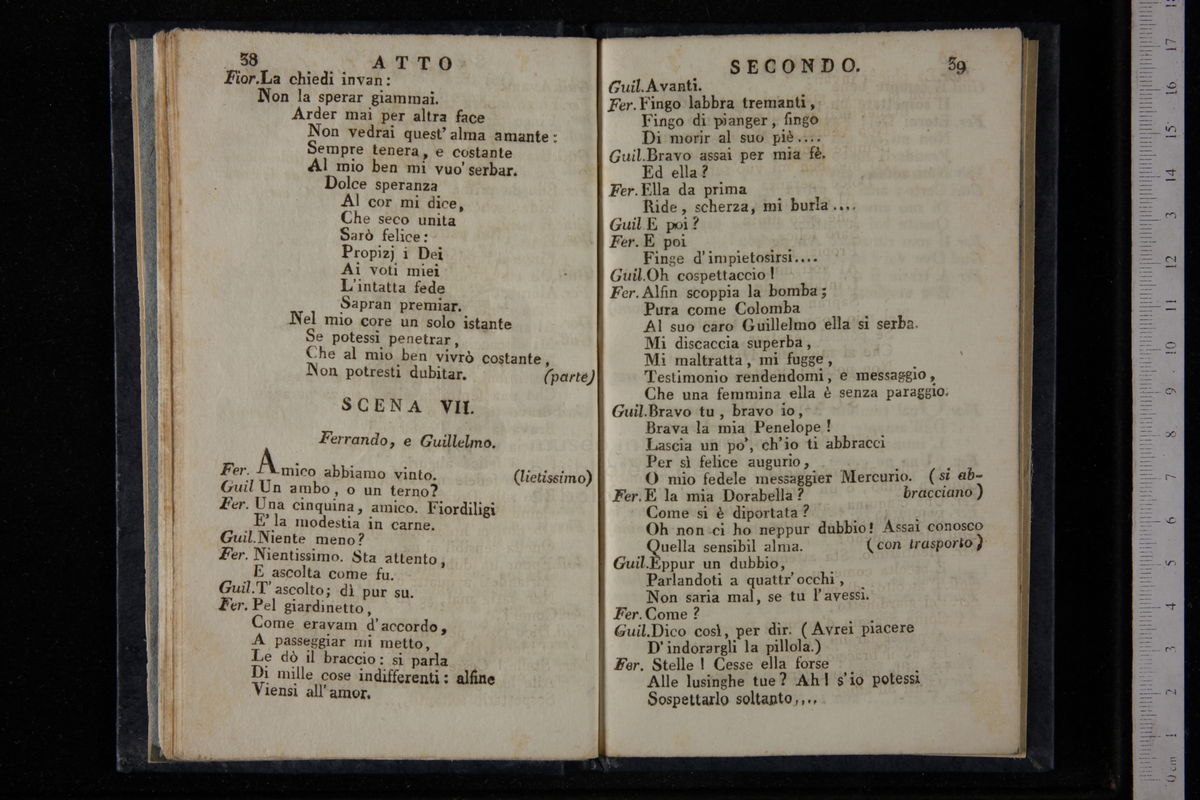 38
ATTO
Fior.La chiedi invan:
Non la sperar giammai.
Arder mai per altra face
Non vedrai quest' alma amante:
Sempre tenera, e costante
Al mio ben mi vuo' serbar.
Dolce speranza
Al cor mi dice,
Che seco unita
Sarò felice:
Propizj i Dei
Ai voti miei
L'intatta fede
Sapran premiar.
Nel mio core un solo istante
Se potessi penetrar,
Che al mio ben vivrò costante,
Non potresti dubitar. (parte)
SCENA VII.
Ferrando, e Guillelmo.
Fer. Amico abbiamo vinto. (lietissimo)
Guil Un ambo, o un terno?
Fer. Una cinquina, amico. Fiordiligi
E' la modestia in carne.
Guil.Niente meno?
Fer. Nientissimo. Sta attento,
E ascolta come fu.
Guil.T' ascolto; dì pur su.
Fer. Pel giardinetto,
Come eravam d'accordo,
A passeggiar mi metto,
Le dò il braccio: si parla
Di mille cose indifferenti: alfine
Viensi all' amor.
SECONDO.
39
Guil.Avanti.
Fer. Fingo labbra tremanti,
Fingo di pianger, fingo
Di morir al suo piè....
Guil.Bravo assai per mia fè.
Ed ella?
Fer. Ella da prima
Ride, scherza, mi burla....
Guil E poi?
Fer. E poi
Finge d'impietosirsi....
Guil.Oh cospettaccio!
Fer. Alfin scoppia la bomba;
Pura come Colomba
Al suo caro Guillelmo ella si serba.
Mi discaccia superba,
Mi maltratta, mi fugge,
Testimonio rendendomi, e messaggio,
Che una femmina ella è senza paraggio.
Guil.Bravo tu, bravo io,
Brava la mia Penelope!
Lascia un po', ch'io ti abbracci
Per sì felice augurio,
O mio fedele messaggier Mercurio. (si ab-
Fer. E la mia Dorabella? bracciano)
Come si è diportata?
Oh non ci ho neppur dubbio! Assai conosco
Quella sensibil alma. (con trasporto)
Guil.Eppur un dubbio,
Parlandoti a quattr' occhi,
Non saria mal, se tu l'avessi.
Fer. Come?
Guil.Dico così, per dir. (Avrei piacere
D'indorargli la pillola.)
Fer. Stelle! Cesse ella forse
Alle lusinghe tue? Ah! s'io potessi
Sospettarlo soltanto,,..